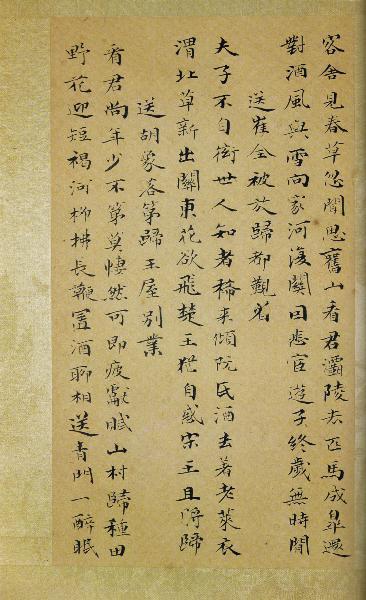 客舍見春草忽聞思舊山看君灞陵去匹馬成皋還
對酒風與雪向家河復關因悲宦遊子終歲無時閒
送崔全被放歸都覲省
夫子不自衒世人知者稀來傾阮氏酒去著老萊衣
渭北草新出關東花欲飛楚王猶自惑宋玉且將歸
送胡象落第歸王屋別業
看君尚年少不第莫悽然可即疲獻賦山村歸種田
野花迎短褐河柳拂長鞭置酒聊相送青門一醉眠